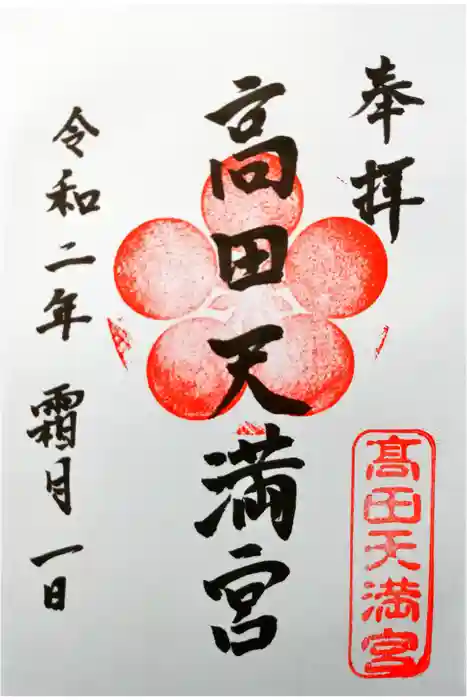 奉拝
高田天満宮
髙田天満宮
令和二年 霜月 一日